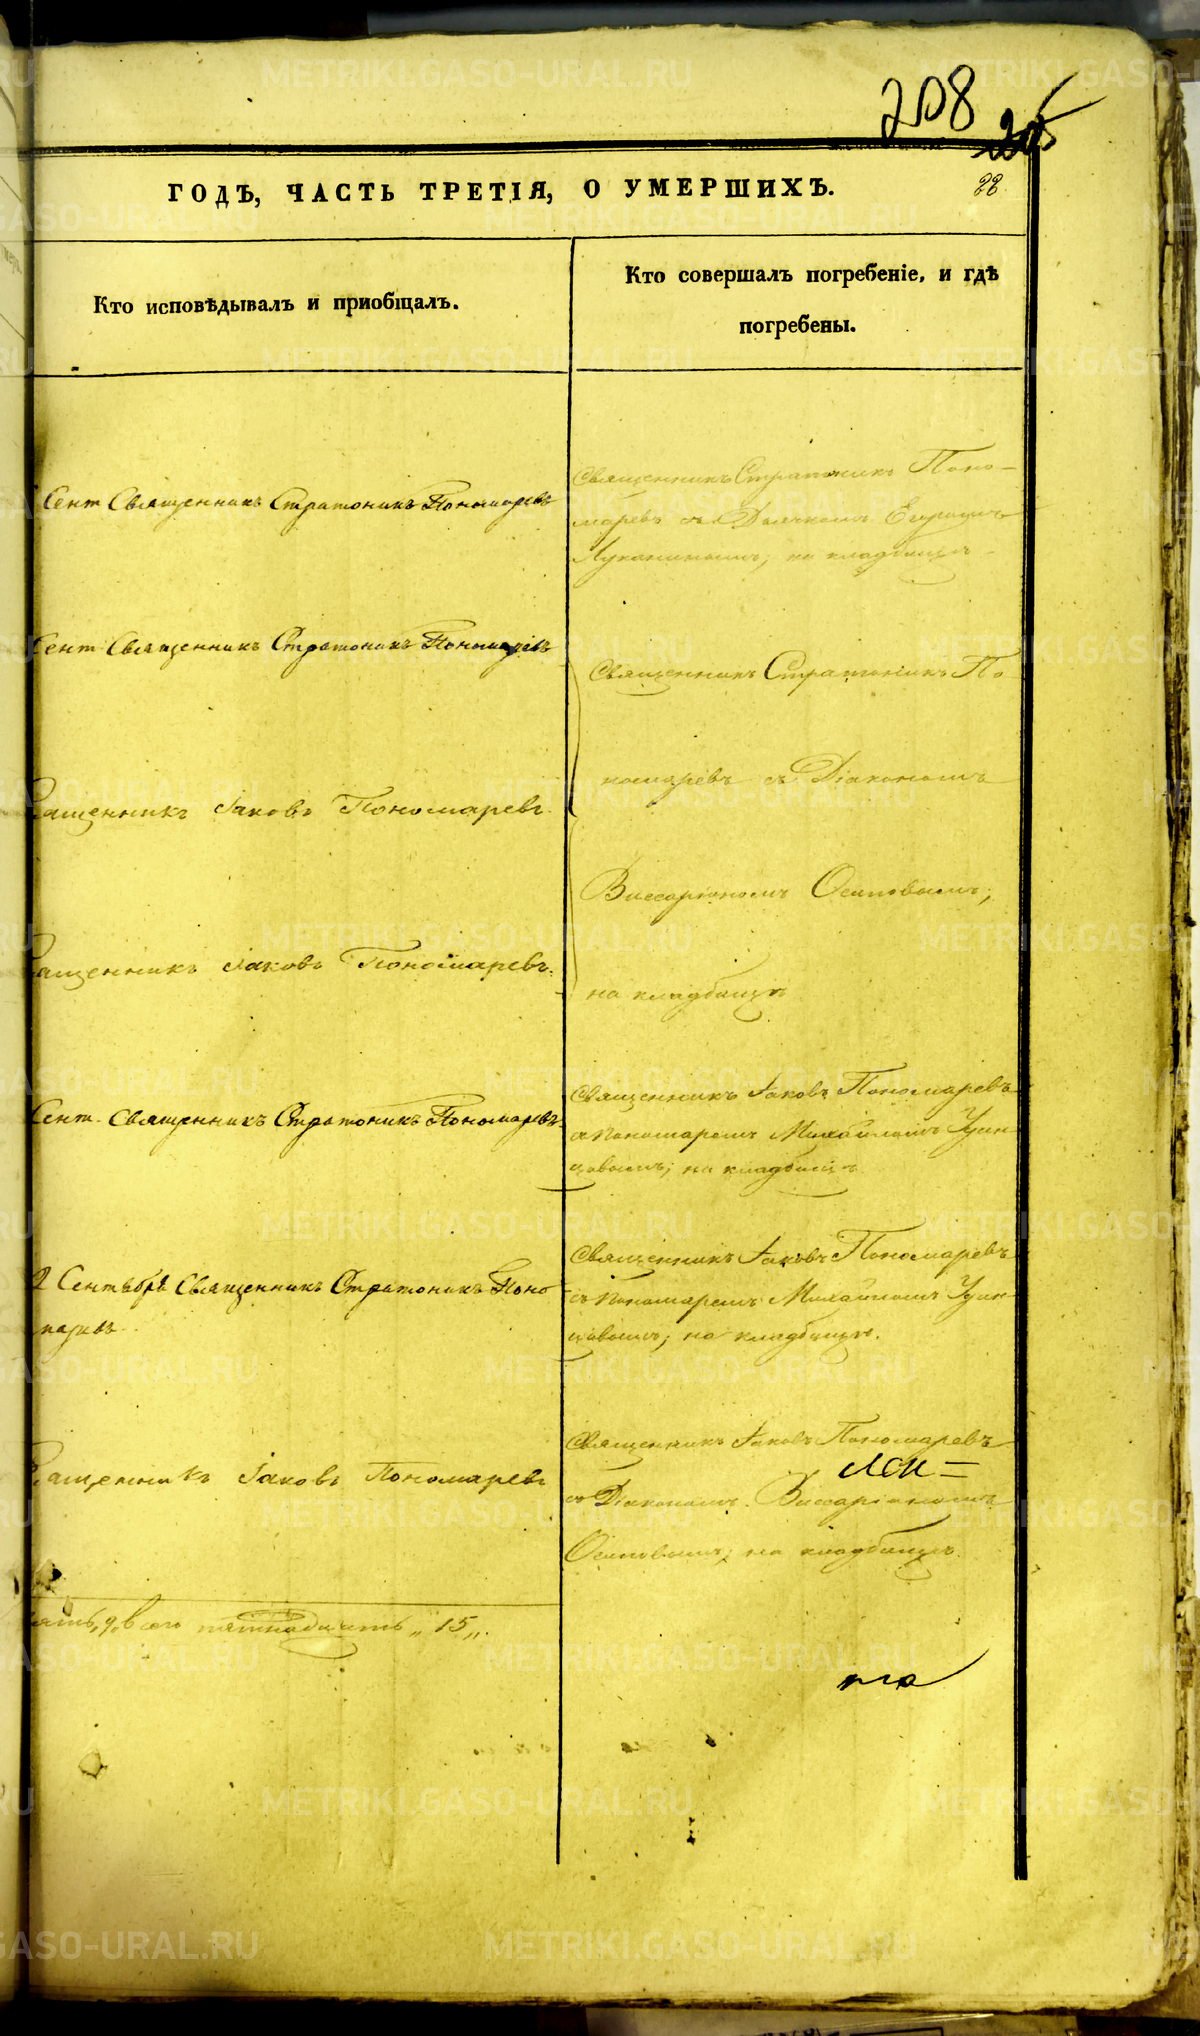 208
205
22
ГОДЪ, ЧАСТЬ ТРЕТІЯ, О УМЕРШИХЪ.
Кто исповѣдывалъ и пріобщалъ.
Кто совершалъ погребеніе, и гдѣ
погребены.
Сент Священникъ Стратоникъ Пономаревъ
Священникъ Стратоникъ Поно-
маревъ съ Дьячкомъ
на кладбищѣ
Сент Священникъ Стратоникъ Пономаревъ
Священникъ Стратоникъ По
номаревъ съ Діакономъ
Виссаріономъ Осиповымъ;
на кладбищѣ
ященникъ Іаковъ Пономаревъ
ященникъ Іаковъ Пономаревъ.
Сент. Священникъ Стратоникъ Пономаревъ
Священникъ Іаковъ Пономаревъ
съ пономаремъ Михаиломъ
цовымъ; на кладбищѣ
2 Сентября Священникъ Стратоникъ Поно
маревъ
Священникъ Іаковъ Пономаревъ
съ пономаремъ Михаиломъ
цовымъ; на кладбищѣ.
ященникъ Іаковъ Пономаревъ
Священникъ Іаковъ Пономаревъ
съ Діакономъ Виссаріономъ
Осиповымъ; на кладбищѣ.
ять, 9, всего пятнадцать „15„.
METRIKI.GASO-URAL.RU